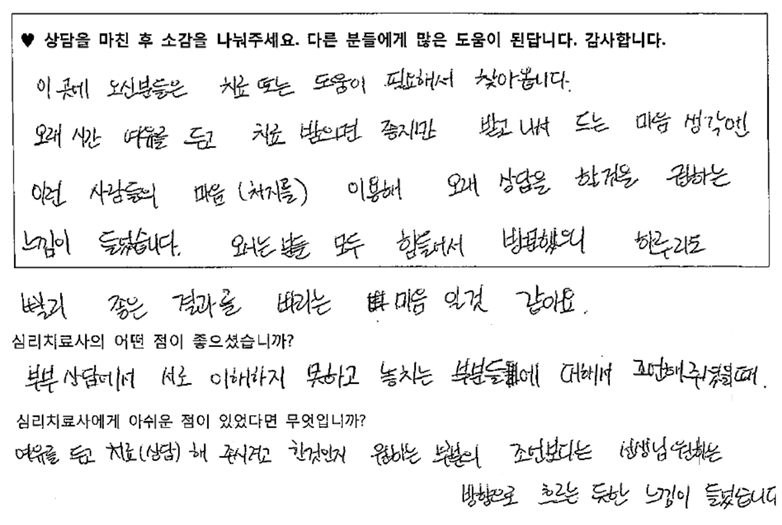 ♥ 상담을 마친 후 소감을 나눠주세요. 다른 분들에게 많은 도움이 된답니다. 감사합니다.
이 곳에 오신분들은 치료 또는 도움이 필요해서 찾아옵니다.
오래 시간 여유를 두고 치료 받으면 좋지만 받고 나서 드는 마음 생각엔
이런 사람들의 마음 (처지를) 이용해 오래 상담을 한것을 권하는
느낌이 들었습니다. 오시는 분들 모두 힘들어서 방문했으니 하루라도
빨리 좋은 결과를 바라는 마음 일것 같아요.
심리치료사의 어떤 점이 좋으셨습니까?
부부 상담에서 서로 이해하지 못하고 놓치는 부분들에 대해서 조언해주셨을때.
심리치료사에게 아쉬운 점이 있었다면 무엇입니까?
여유를 두고 치료(상담) 해 주시려고 한것인지 원하는 부분의 조언보다는 선생님 원하는
방향으로 흐르는 듯한 느낌이 들었습니다